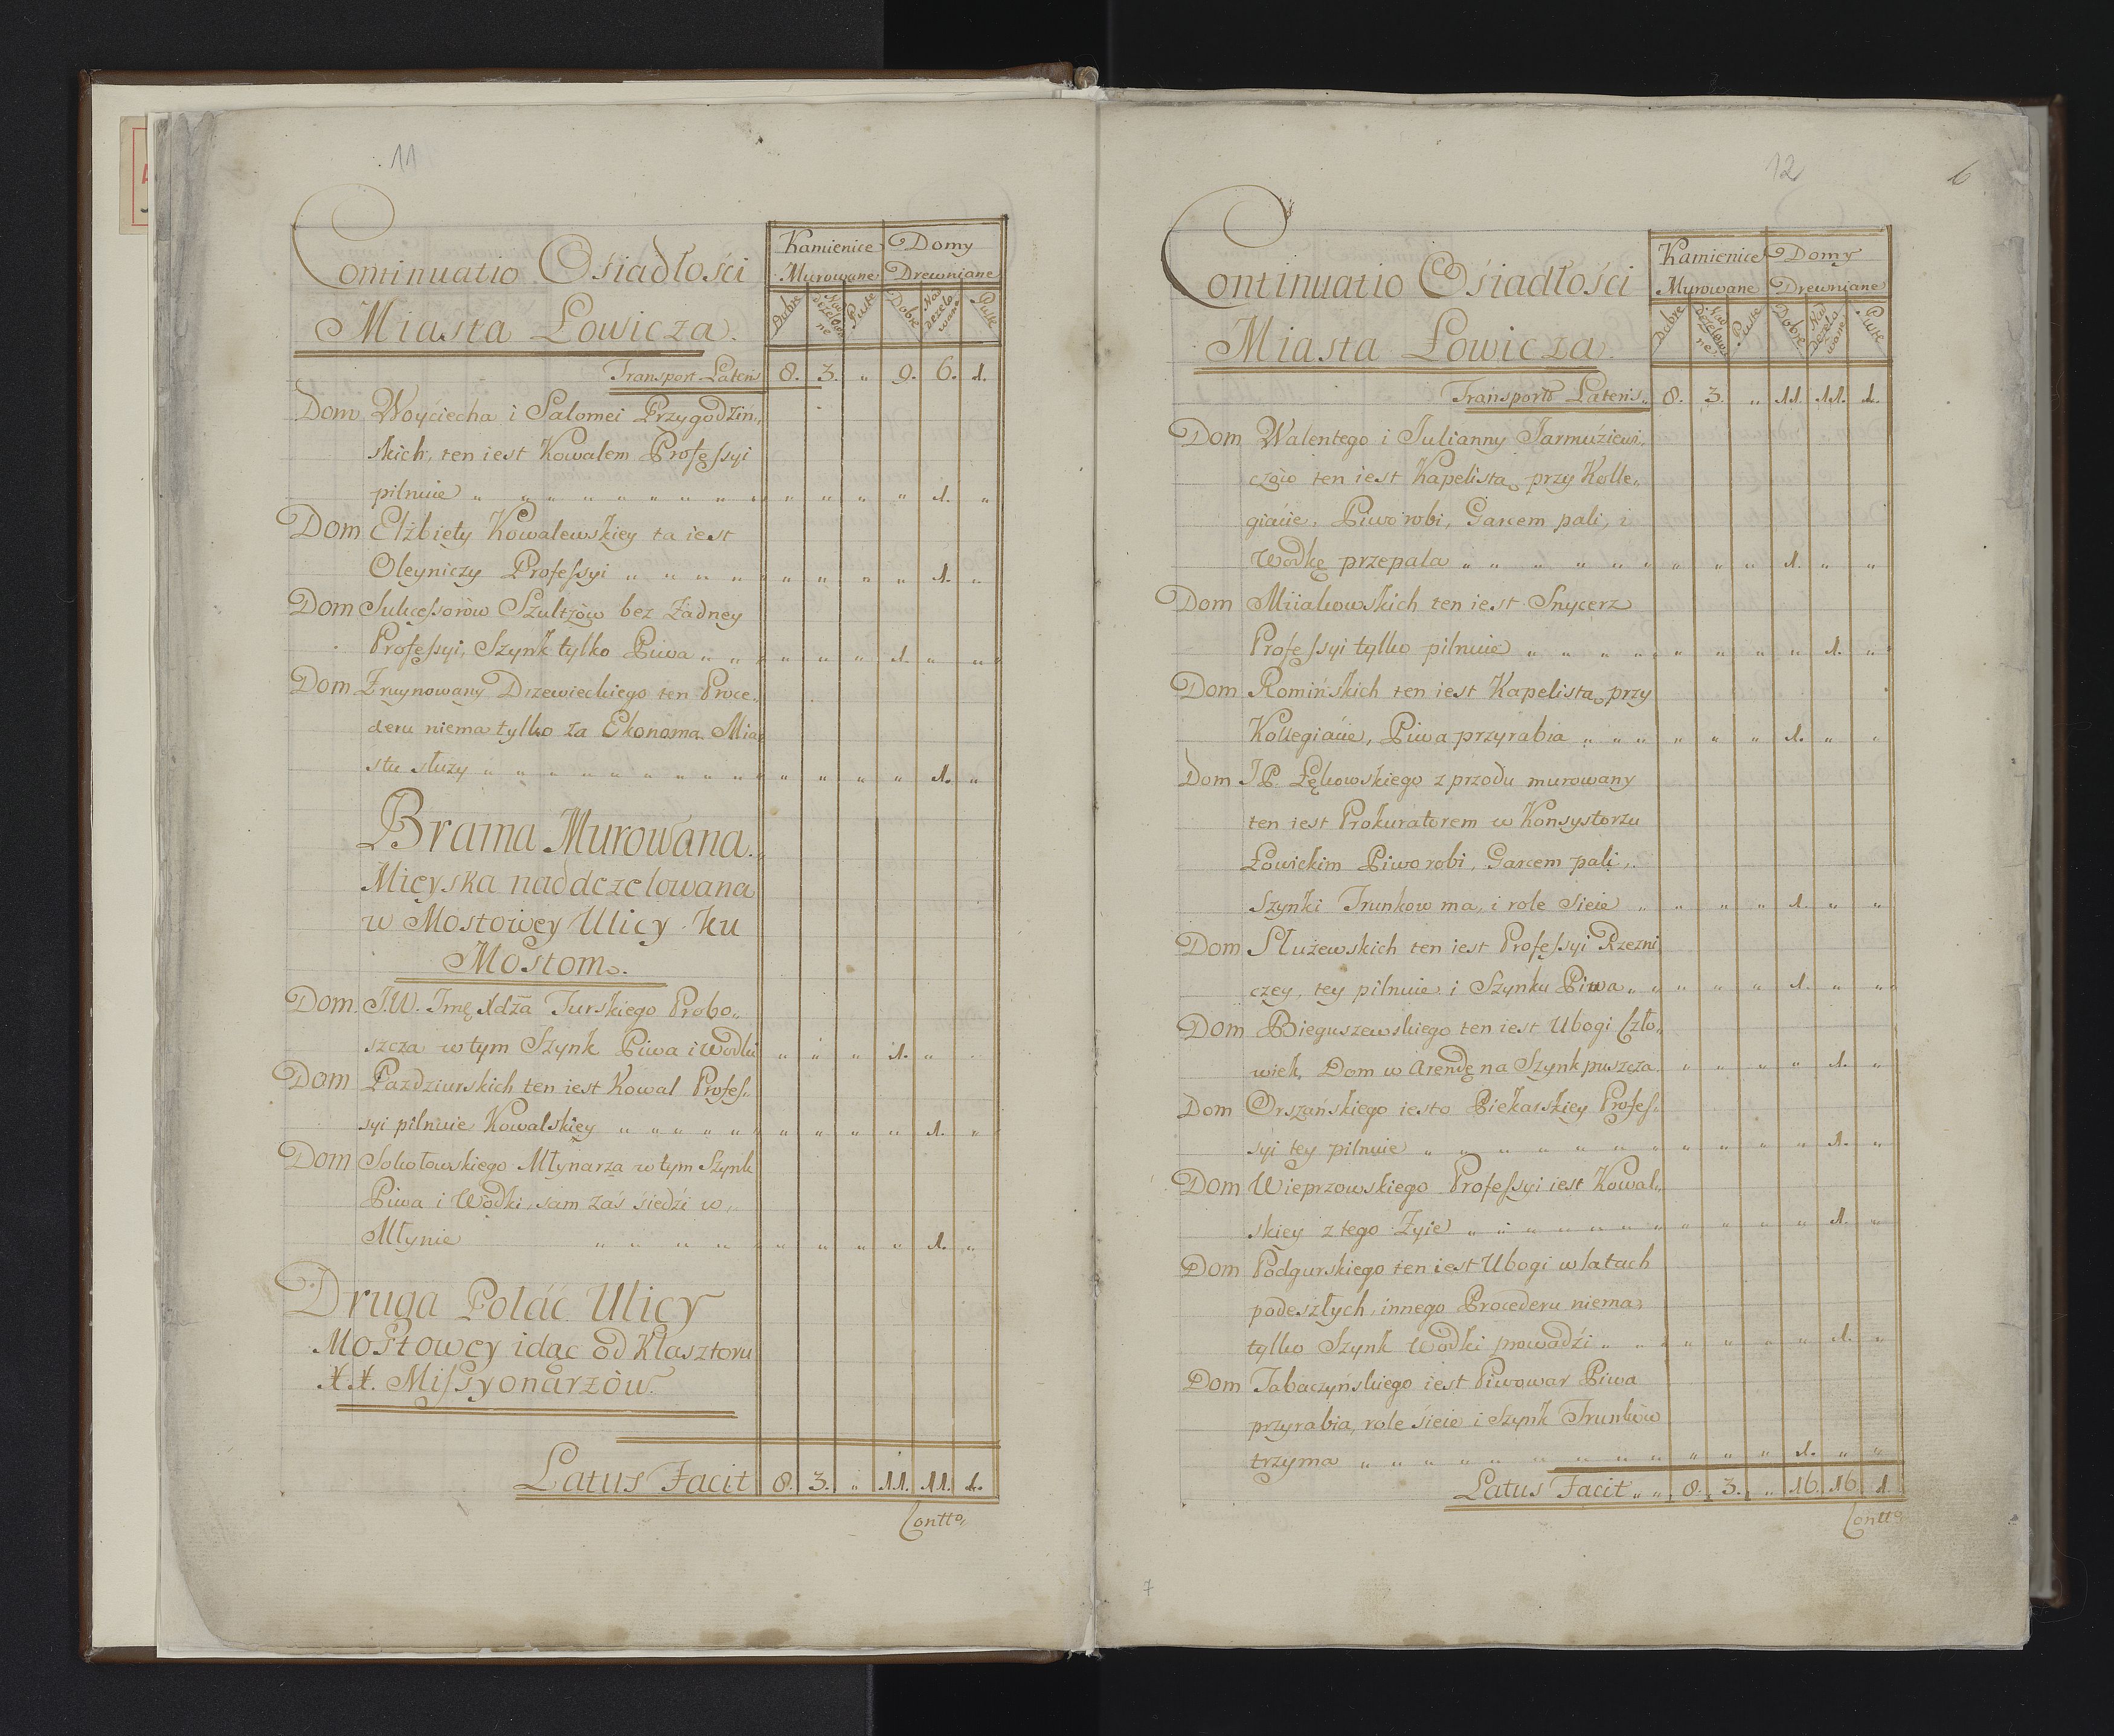 11
Continuatio Osiadłości
Miasta Łowicza.
Kamienice Domy
Murowane Drewniane
Dobre Nad dezelowane Puste Dobre Nad dezelowane Puste
Transport Lateris 8. 3. „ 9. 6. 1.
Dom Woyciecha i Salomei Przygodziń„
skich, ten iest Kowalem Professyi
pilnuie „ „ „ „ „ „ „ „ „ „ „ „ „ 1. „
Dom Elżbiety Kowalewskiey ta iest
Oleyniczy Professyi „ „ „ „ „ „ „ „ „ 1. „
Dom Sukcessorów Szultzów bez Żadney
Professyi, Szynk tylko Piwa „ „ „ „ „ 1. „ „
Dom Zruynowany Drzewieckiego ten Proce„
deru niema tylko za Ekonoma Mia„
stu służy „ „ „ „ „ „ „ „ „ „ „ „ „ 1. „
Brama Murowana„
Mieyska naddezelowana
w Mostowey Ulicy ku
Mostom.
Dom J.W. Imę Xdza Turskiego Probo„
szcza w tym Szynk Piwa i Wodki „ „ „ 1. „
Dom Pazdziurskich ten iest Kowal Profes„
syi pilnuie Kowalskiey „ „ „ „ „ „ „ „ „ 1. „
Dom Sokołowskiego Młynarza w tym Szynk
Piwa i Wódki, sam zaś siedźi w„
Młynie „ „ „ „ „ „ „ „ „ 1. „
Druga Połać Ulicy
Mostowey idąc od Klasztoru
X.X. Missyonarzów.
Latus Facit 8. 3. „ 11. 11. 1.
Contto„
12
6
Continuatio Osiadłości
Miasta Łowicza.
Kamienice Domy
Murowane Drewniane
Dobre Nad dezelowane Puste Dobre Nad dezelowane Puste
Transport Lateris„ 8. 3. „ 11. 11. 1.
Dom Walentego i Julianny Jarmuziewi„
czów ten iest Kapelista przy Kolle„
giacie, Piwo robi, Garcem pali, i
Wodkę przepala „ „ „ „ „ „ „ „ 1. „ „
Dom Miiakowskich ten iest Snycerz
Professyi tylko pilnuie „ „ „ „ „ „ „ „ „ 1. „
Dom Romińskich ten iest Kapelista przy
Kollegiacie, Piwa przyrabia „ „ „ „ „ „ 1. „ „
Dom J.P. Łękowskiego z przodu murowany
ten iest Prokuratorem w Konsystorzu
Łowickim Piwo robi, Garcem pali„
Szynki Trunkow ma, i role sieie „ „ „ „ 1. „ „
Dom Służewskich ten iest Professyi Rzezni
czey, tey pilnuie i Szynku Piwa „ „ „ „ „ 1. „ „
Dom Bieguszewskiego ten iest Ubogi Czło„
wiek, Dom w Arendę na Szynk puszcza „ „ „ „ 1. „
Dom Orszańskiego iesto Piekarskiey Profes„
syi tey pilnuie „ „ „ „ „ „ „ „ „ „ „ 1. „
Dom Wieprzowskiego Professyi iest Kowal„
skiey z tego Żyie „ „ „ „ „ „ „ „ „ „ 1. „
Dom Podgurskiego ten iest Ubogi w latach
podeszłych, innego Procederu niema„
tylko Szynk Wodki prowadźi „ „ „ „ „ „ „ 1. „
Dom Tabaczyńskiego iest Piwowar Piwa
przyrabia, role sieie i Szynk Trunków
trzyma „ „ „ „ „ „ „ „ „ „ „ „ 1. „ „
Latus Facit „ „ 8. 3. „ 16. 16. 1.
Contto
7